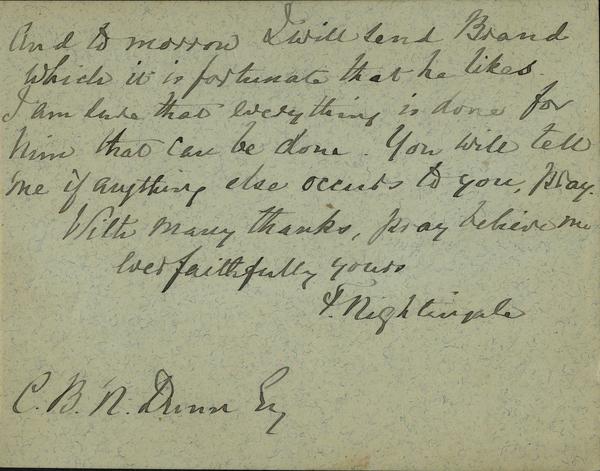 And to morrow I will send Brand
which it is fortunate that he likes.
I am sure that everything is done for
him that can be done. You will tell
me if anything else occurs to you, pray.
With many thanks, pray believe me
ever faithfully yours
F. Nightingale
C. B. N. Dunn Esq